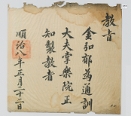 敎旨
金知郁爲通訓
大夫掌樂院正
知製敎者
順治八年正月二十二日